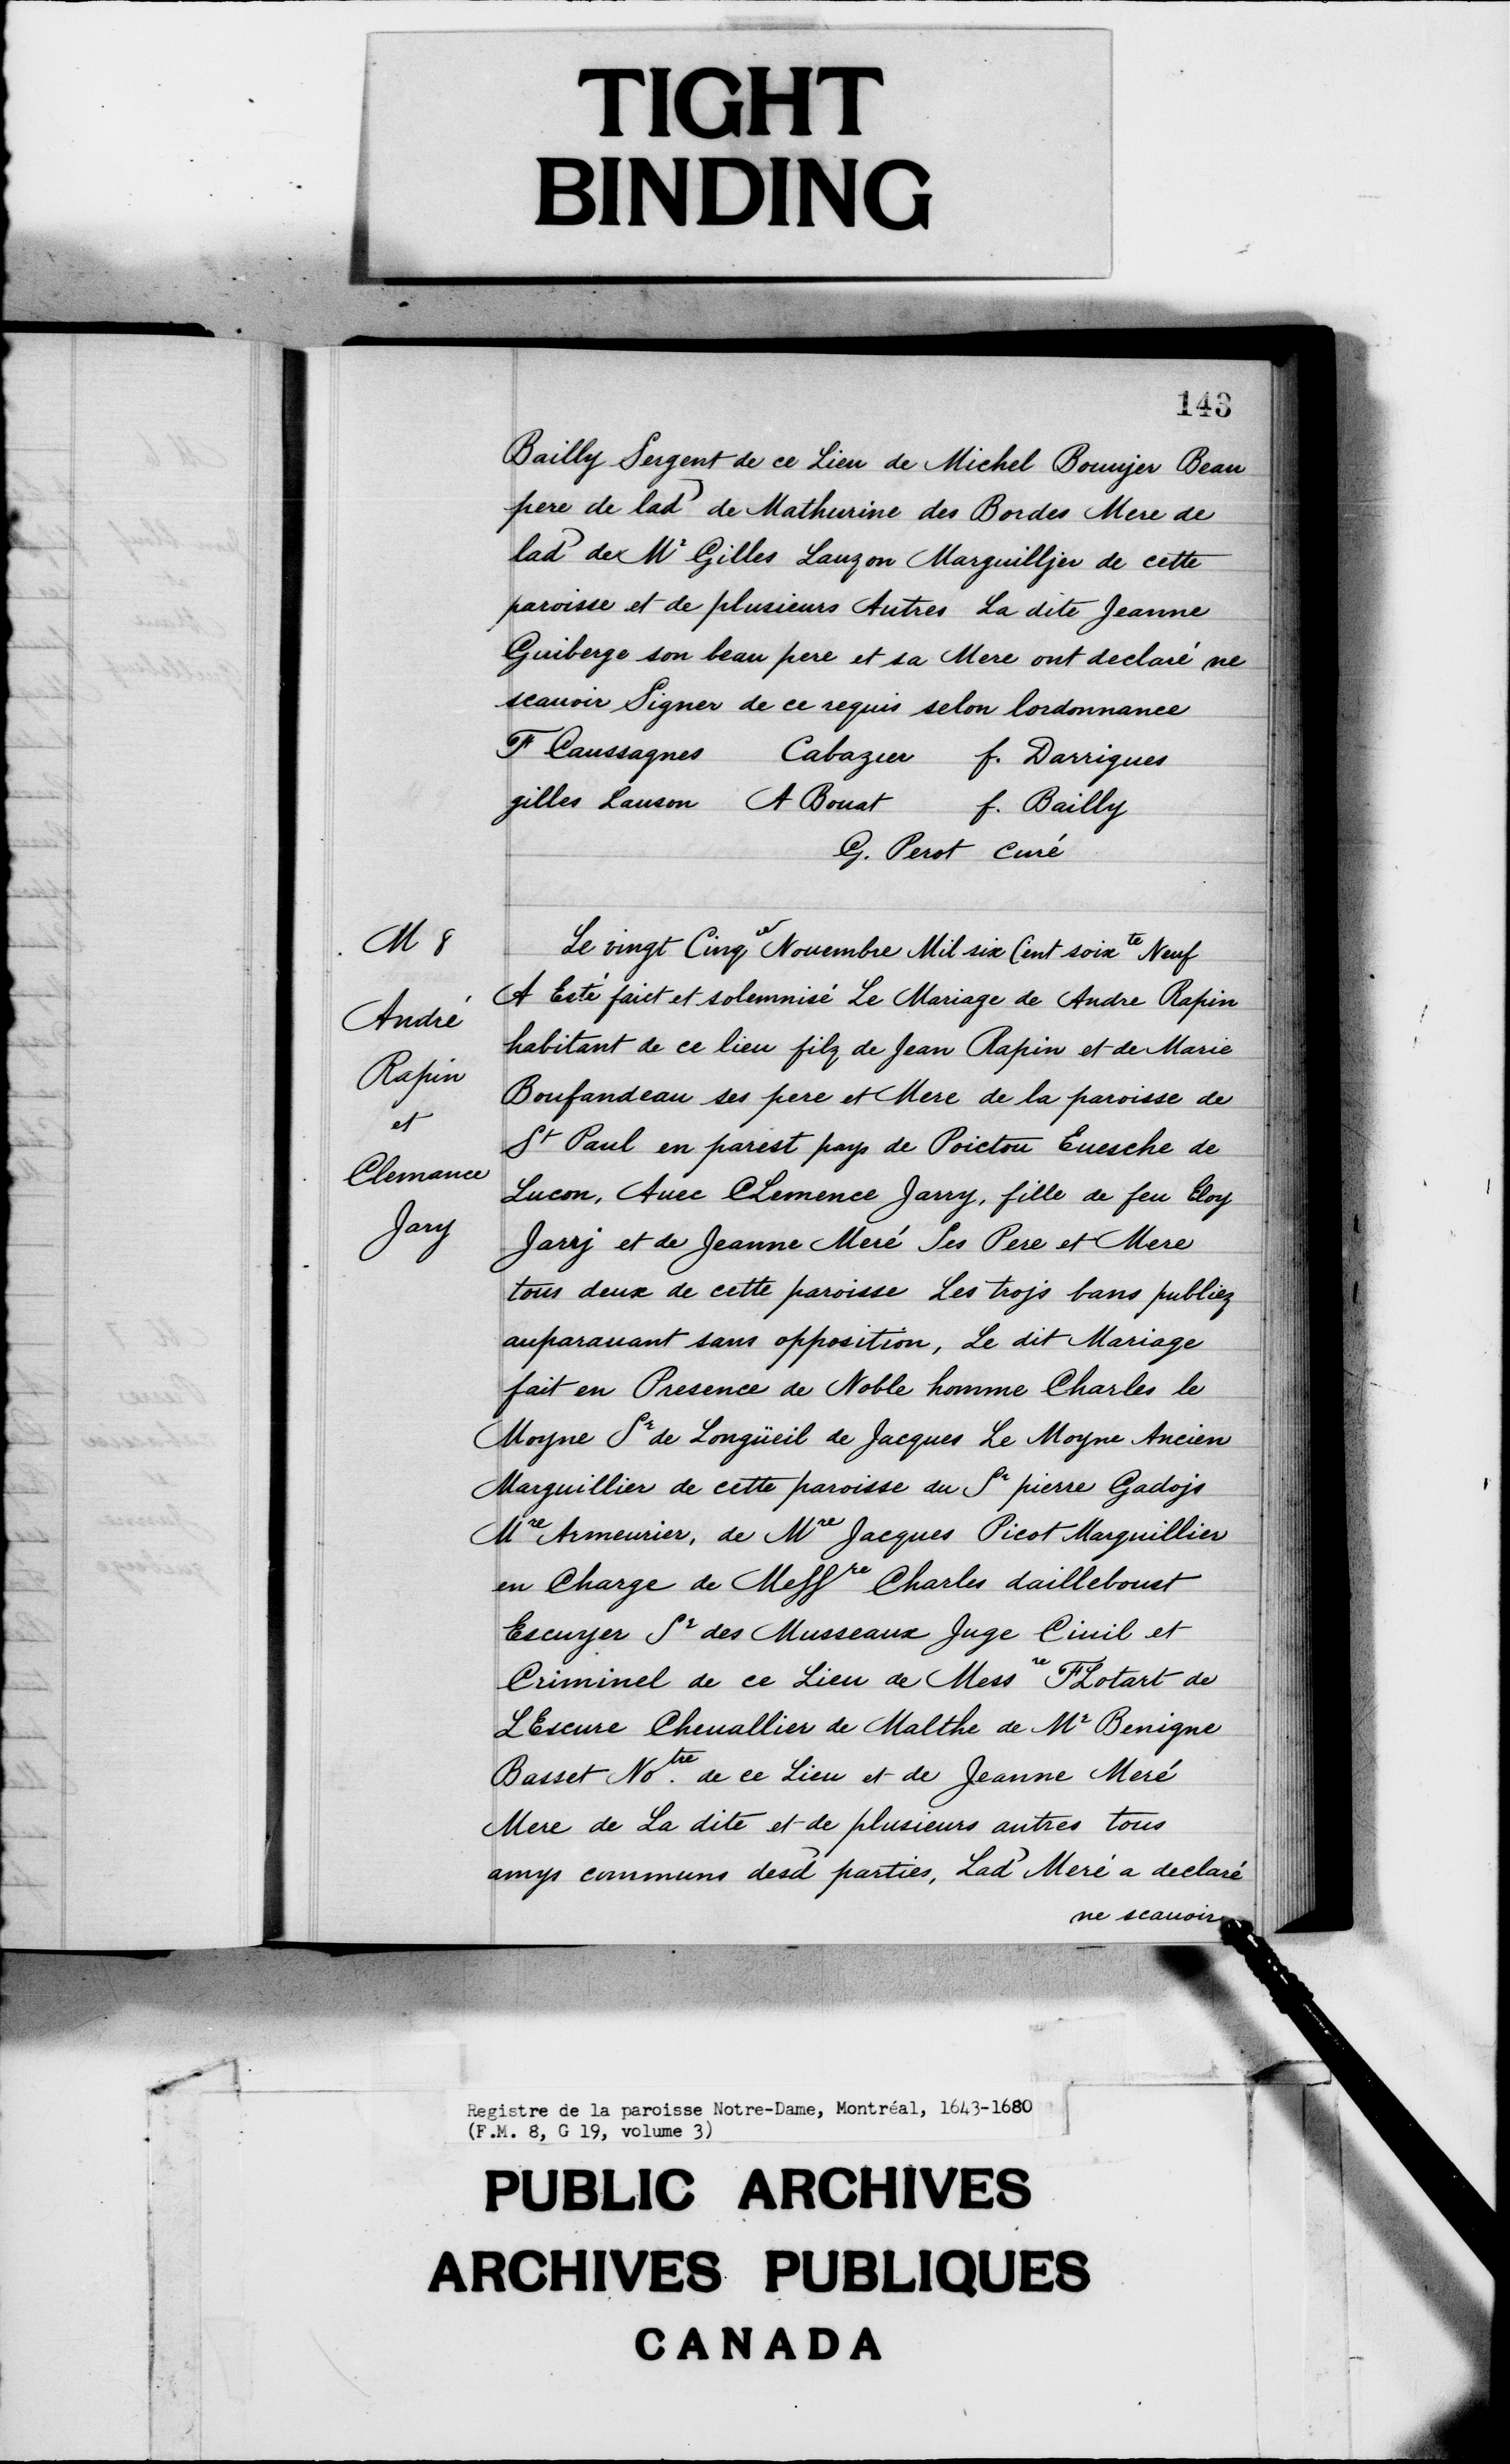 TIGHT
BINDING
143
Bailly Sergent de ce Lieu de Michel Bouujer Beau
pere de lad de Mathurine des Bordes Mere de
lad de Mr Gilles Lauzon Marguilljer de cette
paroisse et de plusieurs Autres La dite Jeanne
Guiberge son beau pere et sa Mere ont declaré ne
scauoir Signer de ce requis selon lordonnance
F Caussagnes Cabazier f. Darrigues
gilles Lauson A Bouat f. Bailly
G. Perot Curé
M 8
André
Rapin
et
Clemance
Jary
Le vingt Cinqe Nouembre Mil six Cent soixte Neuf
A Esté faict et solemnisé Le Mariage de Andre Rapin
habitant de ce lieu filz de Jean Rapin et de Marie
Boufandeau ses pere et Mere de la paroisse de
St Paul en parest pays de Poictou Euesche de
Lucon, Auec CLemence Jarry, fille de feu Eloy
Jarrj et de Jeanne Meré Ses Pere et Mere
tous deux de cette paroisse Les trojs bans publiez
auparauant sans opposition, Le dit Mariage
fait en Presence de Noble homme Charles le
Moyne Sr de Longüeil de Jacques Le Moyne Ancien
Marguillier de cette paroisse du Sr pierre Gadojs
Mre Armeurier, de Mre Jacques Picot Marguillier
en Charge de Messre Charles dailleboust
Escuyer Sr des Musseaux Juge Ciuil et
Criminel de ce Lieu de Messre FLotart de
LEscure Cheuallier de Malthe de Mr Benigne
Basset Notre. de ce Lieu et de Jeanne Meré
Mere de La dite et de plusieurs autres tous
amys communs desd parties, Lad Meré a declaré
ne scauoir
Registre de la paroisse Notre-Dame, Montréal, 1643-1680
(F.M. 8, G 19, volume 3)
PUBLIC ARCHIVES
ARCHIVES PUBLIQUES
CANADA